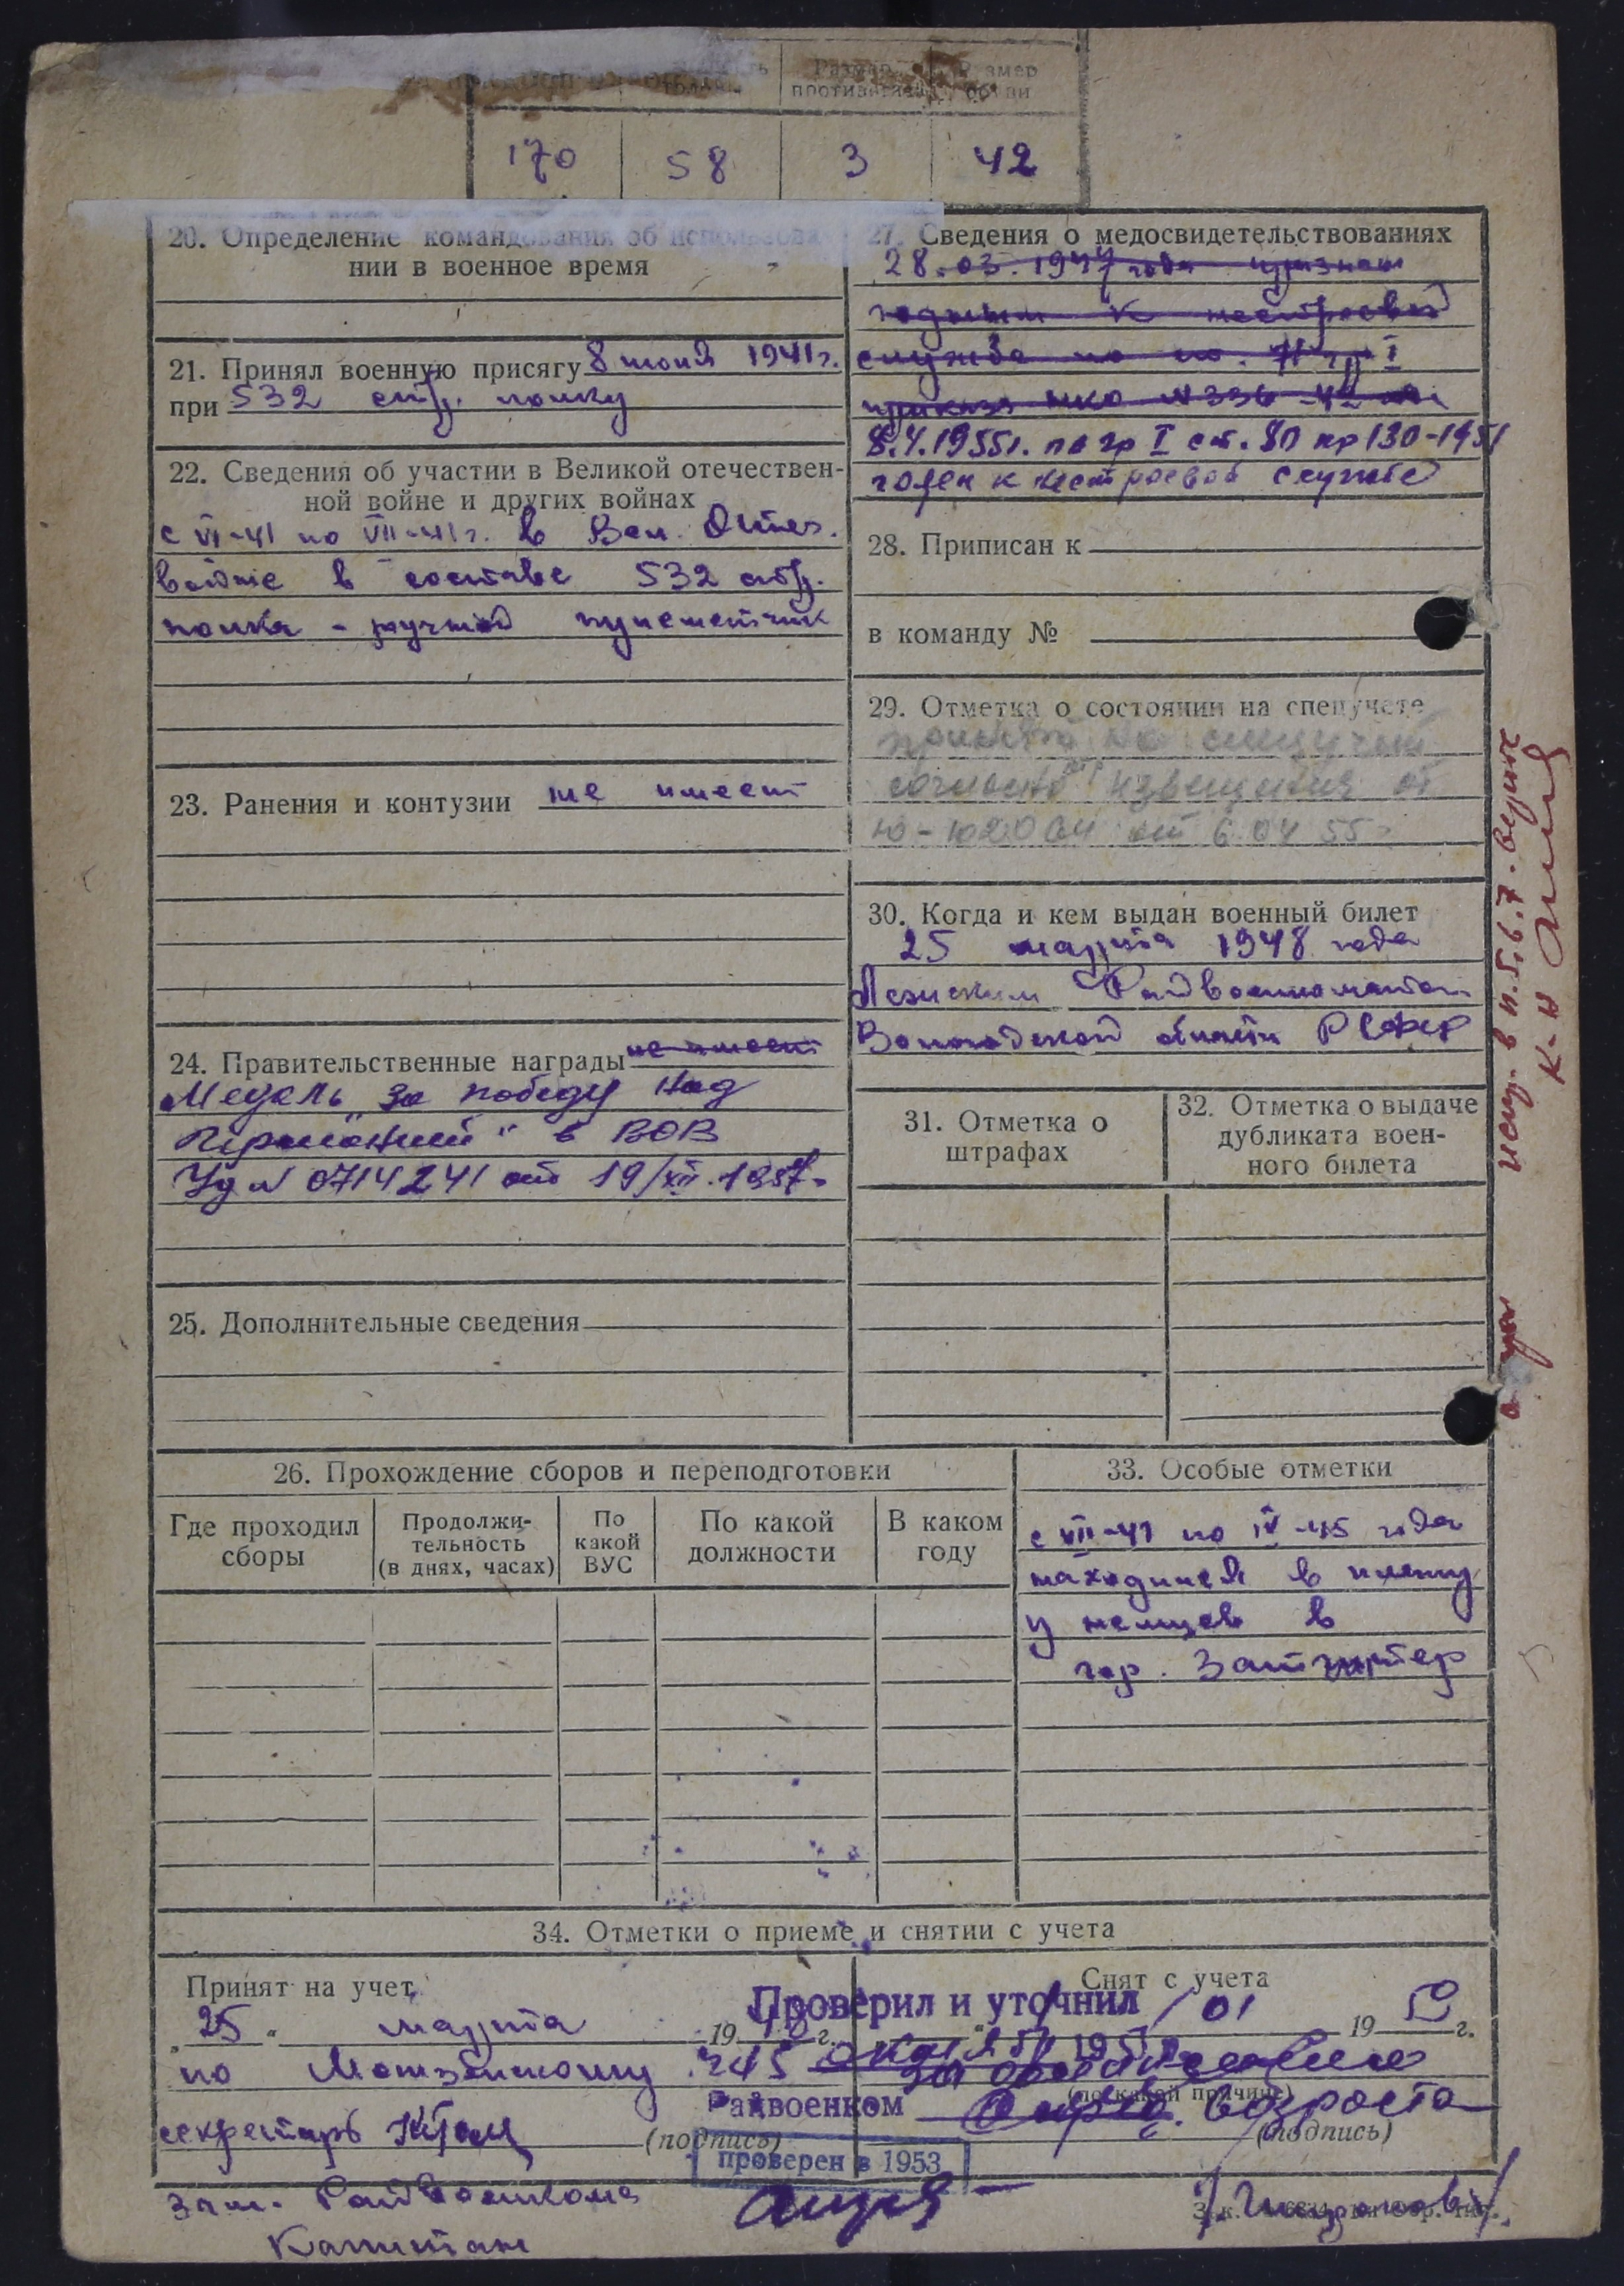 Размер
противогаза
170 58 3 42
20. Определение командования об использова-
нии в военное время
21. Принял военную присягу 8 июня 1941г.
при 532 стр. полку
22. Сведения об участии в Великой отечествен-
ной войне и других войнах
с VI-41 по VII-41г. в Вел. Отеч.
войне в составе 532 стр.
полка - ручной пулеметчик
23. Ранения и контузии не имеет
24. Правительственные награды не имеет
Медаль "За победу над
Германией" в ВОВ
Уд N 0714241 от 19/XII.1957г.
25. Дополнительные сведения
27. Сведения о медосвидетельствованиях
28.03.1947 года признан
годным к нестроевой
службе по ст. гр I
приказа НКО N 336-42 г.
8.4.1955г. по гр I ст. 80 пр 130-1951
годен к нестроевой службе
28. Приписан к
в команду №
29. Отметка о состоянии на спецучете
принят на спецучет
согласно извещения от
от 6.04 55г
30. Когда и кем выдан военный билет
25 марта 1948 года
Райвоенкоматом
Вологодской области РСФСР
31. Отметка о
штрафах
32. Отметка о выдаче
дубликата воен-
ного билета
испр. в п. 5, 6, 7. верить
к-н
26. Прохождение сборов и переподготовки
Где проходил
сборы
Продолжи-
тельность
(в днях, часах)
По
какой
ВУС
По какой
должности
В каком
году
33. Особые отметки
с VII-41 по IV-45 года
находился в плену
у немцев в
гор.
34. Отметки о приеме и снятии с учета
Принят на учет
„25“ марта 1948 г.
по 245
секретарь
(подпись)
Зам. Райвоенкома
Капитан
Проверил и уточнил
195
Райвоенком
проверен в 1953
Снят с учета
01 1959 г.
(по какой причине)
возраста
(подпись)